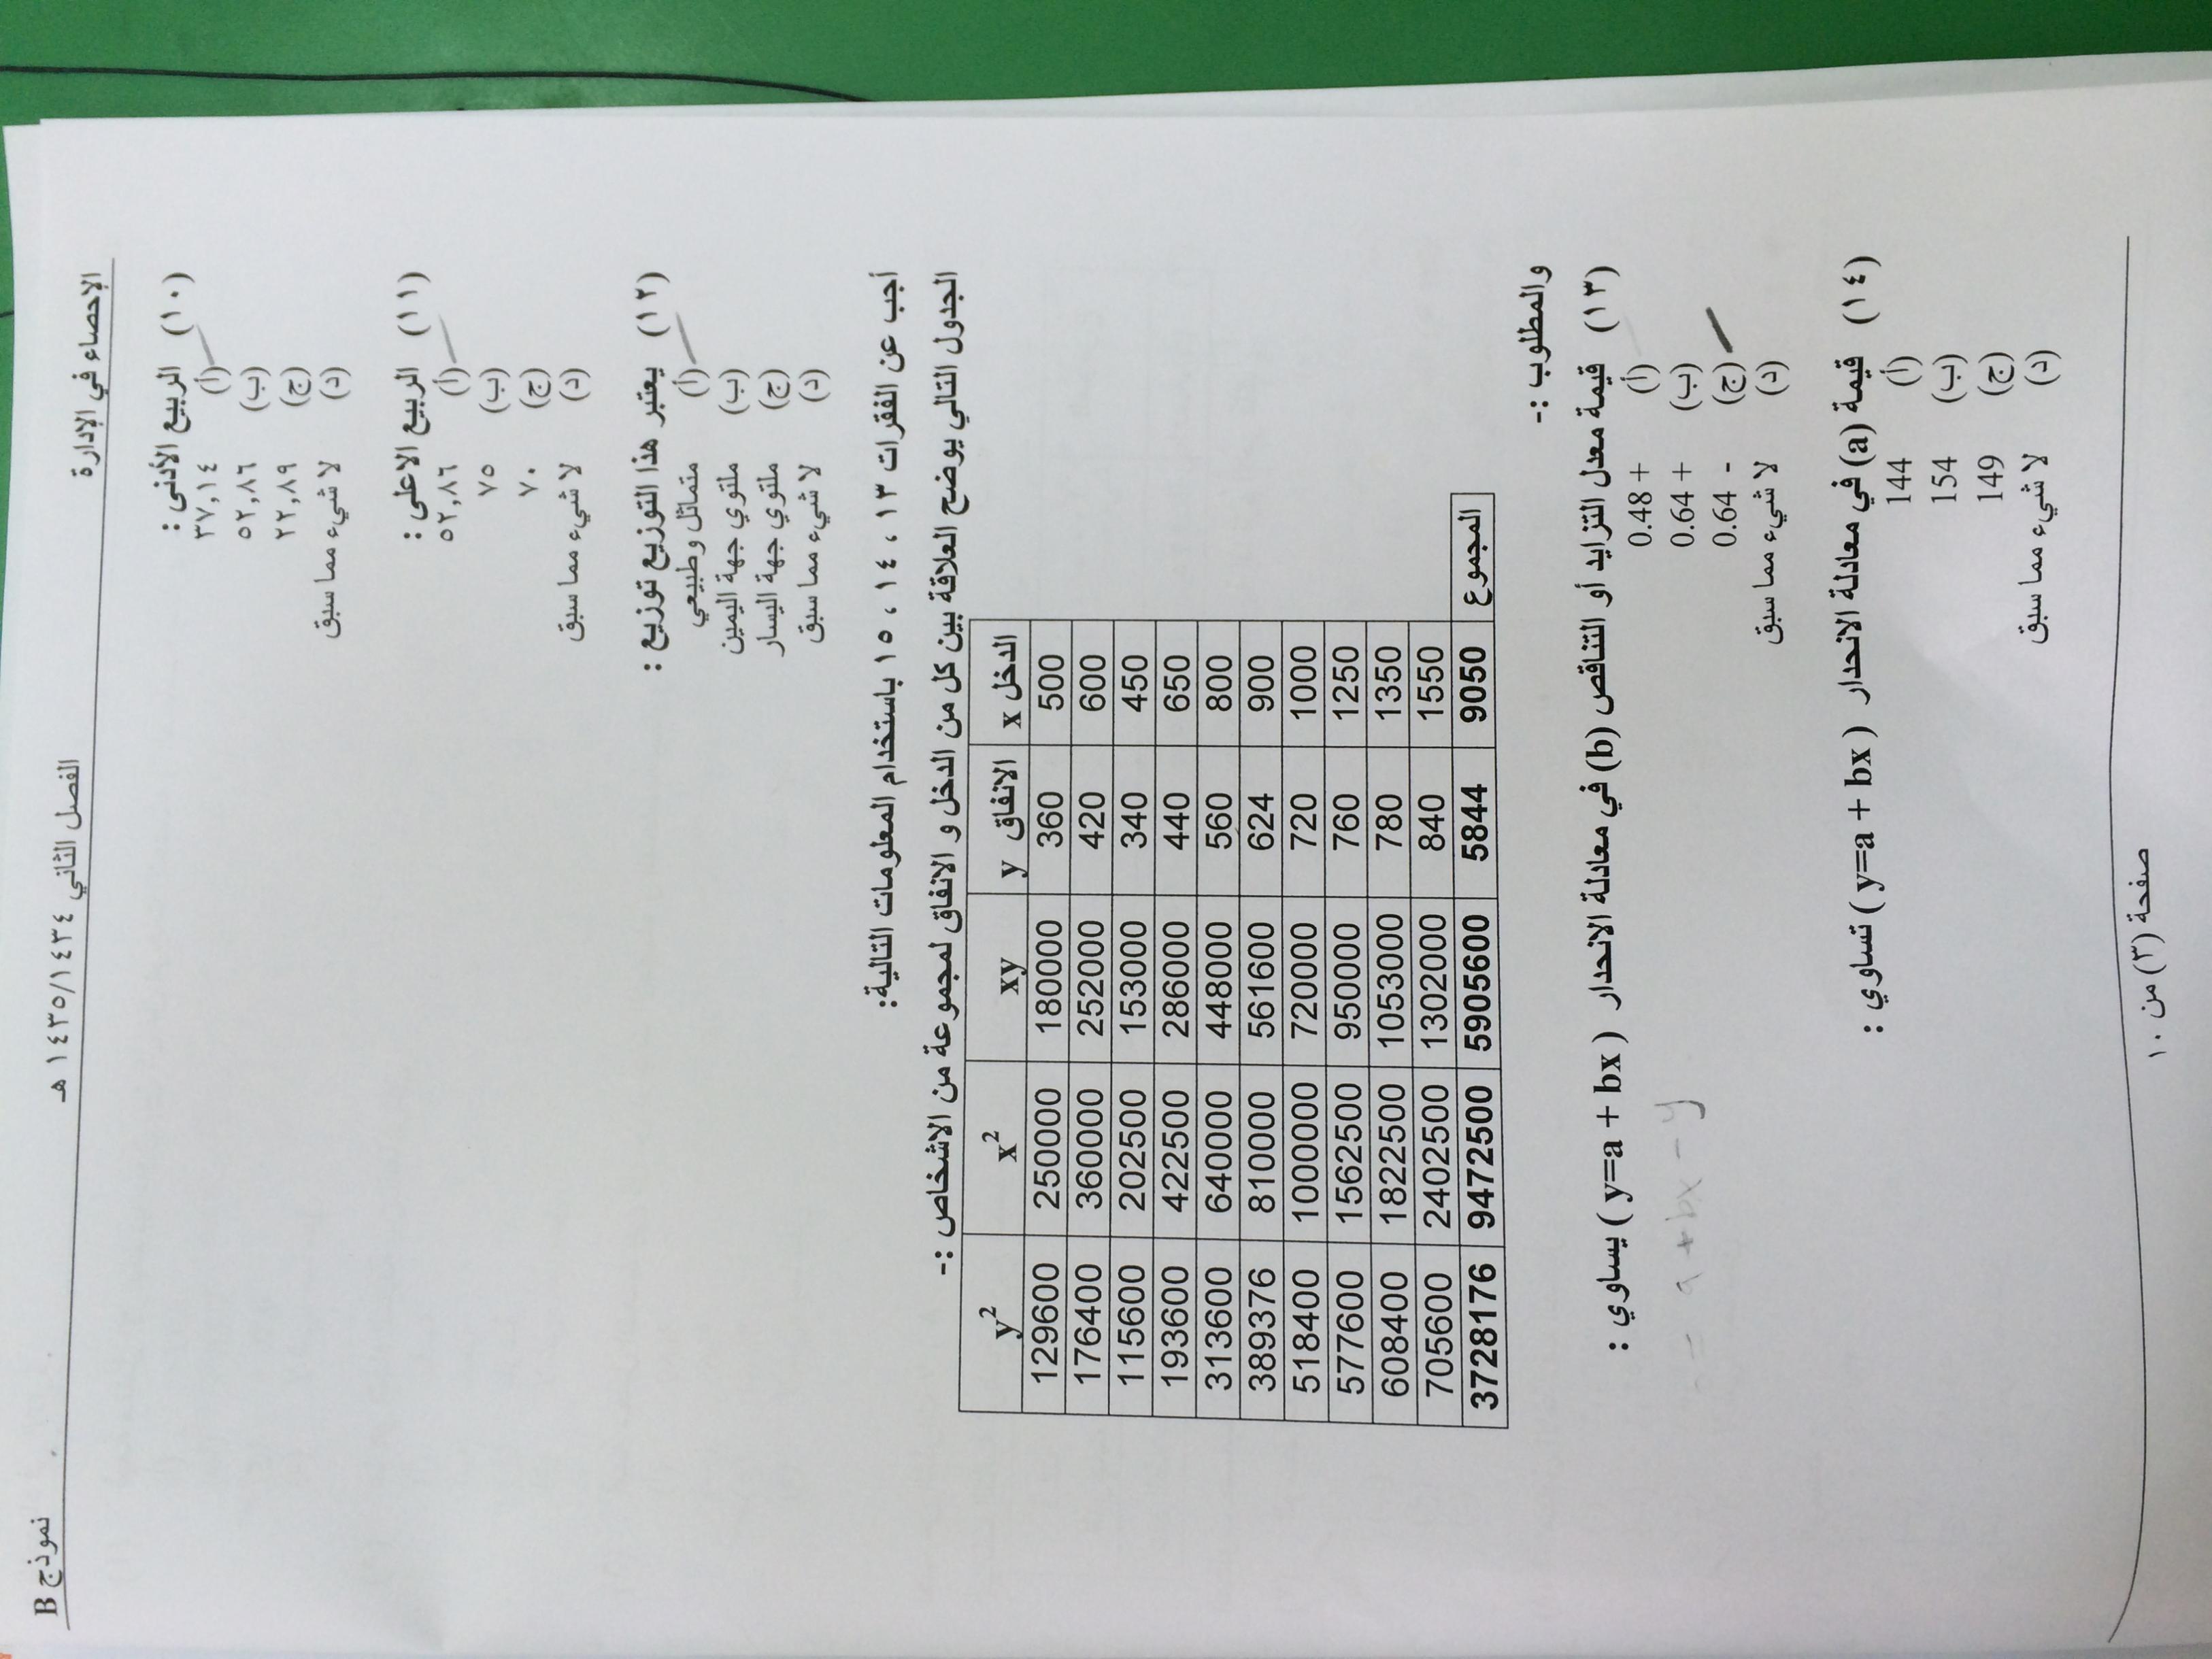 الإحصاء في الإدارة الفصل الثاني ١٤٣٥/١٤٣٤ هـ نموذج B
(١٠) الربيع الأدنى :
(أ) ٣٧,١٤
(ب) ٥٢,٨٦
(ج) ٢٢,٨٩
(د) لا شيء مما سبق
(١١) الربيع الاعلى :
(أ) ٥٢,٨٦
(ب) ٧٥
(ج) ٧٠
(د) لا شيء مما سبق
(١٢) يعتبر هذا التوزيع توزيع :
(أ) متماثل وطبيعي
(ب) ملتوي جهة اليمين
(ج) ملتوي جهة اليسار
(د) لا شيء مما سبق
أجب عن الفقرات ١٣ ، ١٤ ، ١٥ باستخدام المعلومات التالية:
الجدول التالي يوضح العلاقة بين كل من الدخل و الانفاق لمجموعة من الاشخاص :-
الدخل x الانفاق y xy x² y²
500 360 180000 250000 129600
600 420 252000 360000 176400
450 340 153000 202500 115600
650 440 286000 422500 193600
800 560 448000 640000 313600
900 624 561600 810000 389376
1000 720 720000 1000000 518400
1250 760 950000 1562500 577600
1350 780 1053000 1822500 608400
1550 840 1302000 2402500 705600
المجموع 9050 5844 5905600 9472500 3728176
والمطلوب :-
(١٣) قيمة معدل التزايد أو التناقص (b) في معادلة الانحدار ( y=a + bx ) يساوي :
(أ) 0.48 +
(ب) 0.64 +
(ج) 0.64 -
(د) لا شيء مما سبق
= a + bx - y
(١٤) قيمة (a) في معادلة الانحدار ( y=a + bx ) تساوي :
(أ) 144
(ب) 154
(ج) 149
(د) لا شيء مما سبق
صفحة (٣) من ١٠